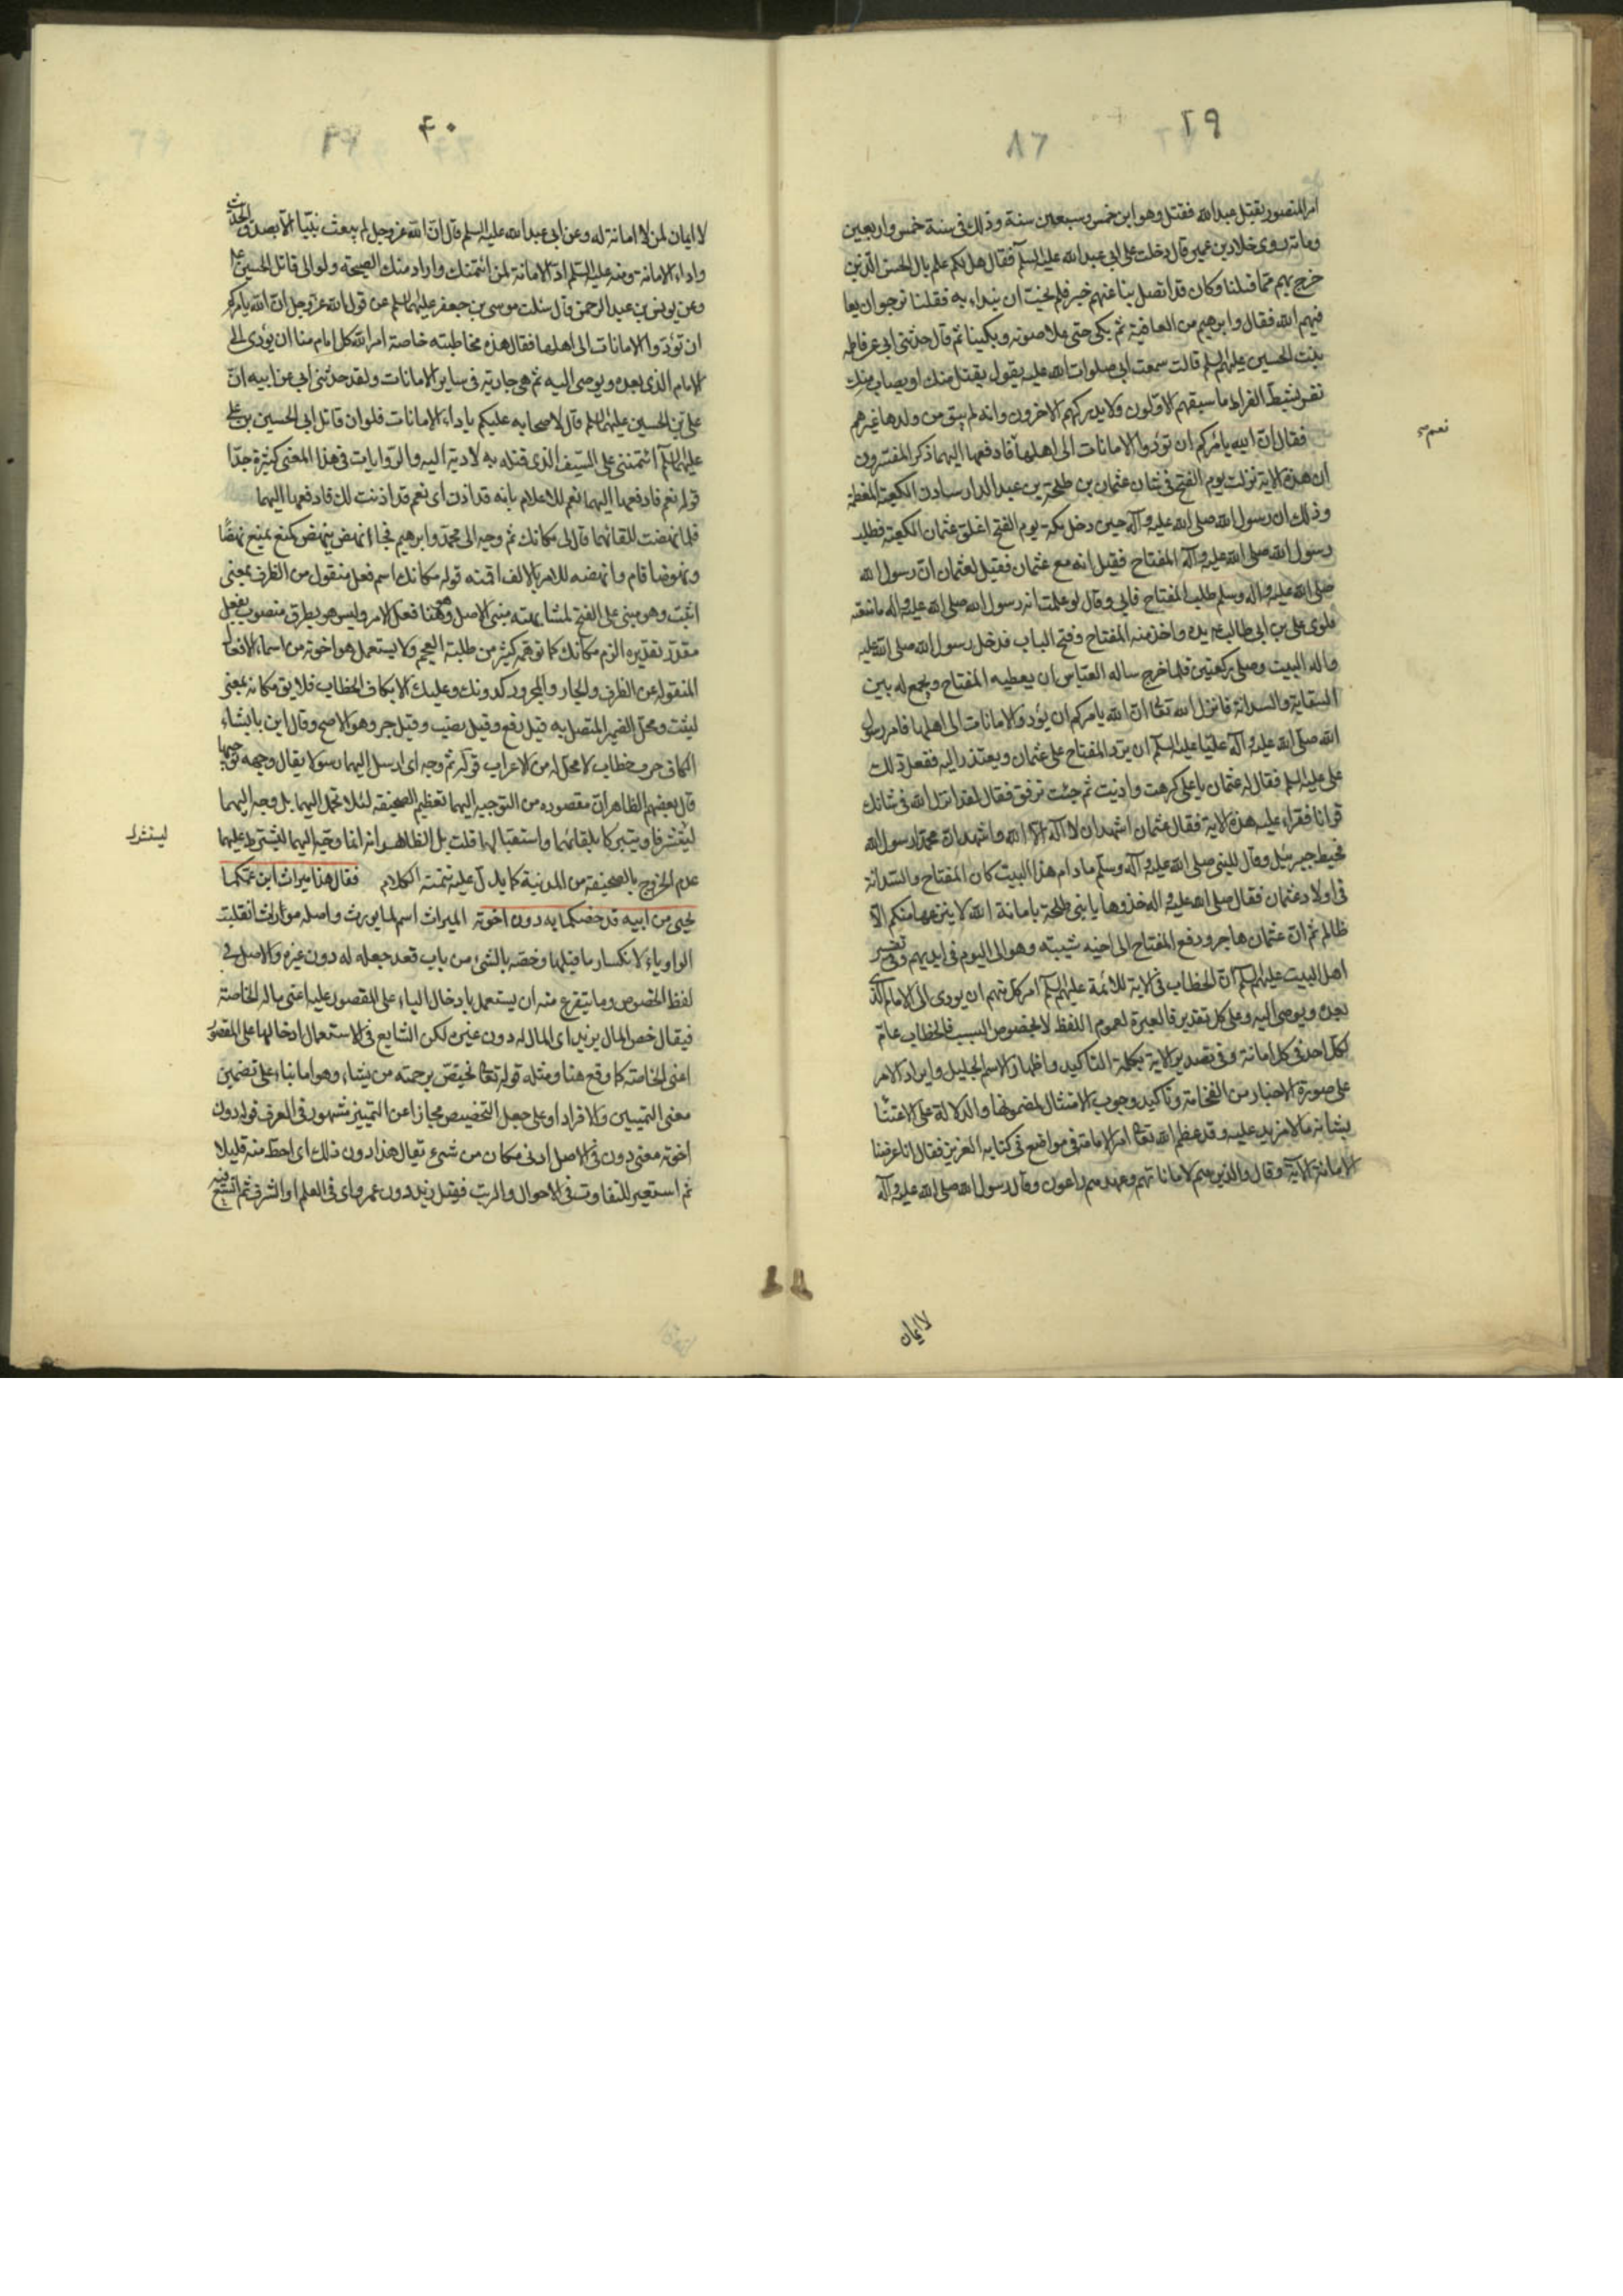 ٢٩
٨٦
امر المنصور بقتل عبدالله فقتل وهو ابن خمس وسبعين سنة وذلك فى سنة خمس واربعين
ومائة روى خلاد بن عمير قال دخلت على ابى عبد الله عليه السلم فقال هل لكم علم بال الحسن الذين
خرج بهم مما قبلنا وكان قد اتصل بنا عنهم خبر فلم نحبّ ان نبداء به فقلنا نرجو ان يعا
فيهم الله فقال واين هم من العافية ثم بكى حتى علا صوته وبكينا ثم قال حدثنى ابى عن فاطمه
بنت الحسين عليهم السلم قالت سمعت ابى صلوات الله عليه يقول يقتل منك او يصاب منك
نفر بشط الفرات ما سبقهم الاولون ولا يدركهم الاخرون وانه لم يبق من ولدها غيرهم
نعم
فقال ان الله يامركم ان تؤدوا الامانات الى اهلها فادفعها اليهما ذكر المفسرون
ان هذه الاية نزلت يوم الفتح فى شان عثمان بن طلحة بن عبد الدار سادن الكعبة المعظمة
وذلك ان رسول الله صلى الله عليه وآله حين دخل مكة يوم الفتح اغلق عثمان الكعبة فطلب
رسول الله صلى الله عليه وآله المفتاح فقيل انه مع عثمان فقيل لعثمان ان رسول الله
صلى الله عليه واله وسلم طلب المفتاح فابى وقال لو علمت انه رسول الله صلى الله عليه واله ما منعته
فلوى على بن ابى طالب يده واخذ منه المفتاح وفتح الباب فدخل رسول الله صلى الله عليه
واله البيت وصلى ركعتين فلما خرج ساله العباس ان يعطيه المفتاح ويجمع له بين
السقاية والسدانة فانزل الله تعالى ان الله يامركم ان تؤدوا الامانات الى اهلها فامر رسول
الله صلى الله عليه وآله عليّا عليه السلم ان يرد المفتاح على عثمان ويعتذر اليه ففعل ذلك
على عليه السلم فقال له عثمان يا على اكرهت واذيت ثم جئت ترفق فقال لقد انزل الله فى شانك
قرانا فقراء عليه هذه الاية فقال عثمان اشهد ان لا اله الا الله واشهد ان محمدا رسول الله
فهبط جبرئيل وقال للنبى صلى الله عليه وآله وسلم ما دام هذا البيت كان المفتاح والسدانة
فى اولاد عثمان فقال صلى الله عليه واله خذوها يا بنى طلحة بامانة الله لا ينزعها منكم الا
ظالم ثم ان عثمان هاجر ودفع المفتاح الى اخيه شيبته وهو الى اليوم فى ايديهم وفى تفسير
اهل البيت عليهم السلم ان الخطاب فى الاية للائمة عليهم السلم امر كل منهم ان يودى الى الامام الذى
بعده ويوصى اليه وعلى كل تقدير فالعبرة لعموم اللفظ لا بخصوص السبب فالخطاب عام
لكل احد فى كل امانة وفى تصدير الاية بكلمة التاكيد واظهار الاسم الجليل وايراد الامر
على صورة الاخبار من الفخامة وتاكيد وجوب الامتثال لمضمونها والدلالة على الاعتنا
بشانه ما لا مزيد عليه وقد عظم الله تعالى امر الامانة فى مواضع فى كتابه العزيز فقال انا عرضنا
الامانة الآية وقال والذين هم لاماناتهم وعهدهم راعون وقال رسول الله صلى الله عليه وآله
لا ايمان
۴۰
لا ايمان لمن لا امانة له وعن ابى عبد الله عليه السلم قال ان الله عز وجل لم يبعث نبيّا الا بصدق الحديث
واداء الامانة ومنه عليه السلم ادّ الامانة لمن ائتمنك واراد منك النصيحة ولو الى قاتل الحسين
وعن يونس بن عبد الرحمن قال سئلت موسى بن جعفر عليهما السلم عن قول الله عز وجل ان الله يامركم
ان تؤدوا الامانات الى اهلها فقال هذه مخاطبته خاصة امر الله كل امام منا ان يؤدى الى
الامام الذى بعده ويوصى اليه ثم هى جارية فى ساير الامانات ولقد حدثنى ابى عن ابيه ان
على بن الحسين عليهما السلم قال لاصحابه عليكم باداء الامانات فلو ان قاتل ابى الحسين بن على
عليهما السلم ائتمننى على السيف الذى قتله به لاديته اليه والروايات فى هذا المعنى كثيرة جدّا
قوله نعم فادفعها اليهما نعم للاعلام بانه قد اذن اى نعم قد اذنت لك فادفعها اليهما
فلما نهضت للقائهما قال لى مكانك ثم وجه الى محمد وابرهيم فجاءا نهض ينهض كمنع يمنع نهضًا
ونهوضا قام وانهضه للامر بالالف اقمته قوله مكانك اسم فعل منقول من الظرف بمعنى
اثبت وهو مبنى على الفتح لمشابهته مبنى الاصل وهو هنا فعل الامر وليس هو بظرف منصوب بفعل
مقدر تقديره الزم مكانك كما توهمه كثير من طلبة العجم ولا يستعمل هو اخوته من اسماء الافعال
المنقوله عن الظرف والجار والمجرور كدونك وعليك الا بكاف الخطاب فلا يق مكانه بمعنى
ليثبت ومحل الضمير المتصل به قيل رفع وقيل نصب وقيل جر وهو الاصح وقال ابن بابشاد
الكاف حرف خطاب لا محل له من الاعراب قوله ثم وجه اى ارسل اليهما رسولا يقال وجهه توجيها
قال بعضهم الظاهر ان مقصوده من التوجيه اليهما تعظيم الصحيفة لئلا تحمل اليهما بل وجه اليهما
ليتشرفا ويتبركا بلقائهما واستقبالها قلت بل الظاهر انه انما وجه اليهما ليشترط عليهما
عدم الخروج بالصحيفة من المدينة كما يدل عليه تتمة الكلام فقال هذا ميراث ابن عمكما
يحيى من ابيه قد خصكما به دون اخوته الميراث اسم لما يورث واصله موراث انقلبت
الواو ياء لانكسار ما قبلها وخصه بالشئ من باب قعد جعله له دون غيره والاصل فى
لفظ الخصوص وما يتفرع منه ان يستعمل بادخال الباء على المقصور عليه اعنى ماله الخاصة
فيقال خص المال بزيد اى المال له دون غيره لكن الشايع فى الاستعمال ادخالها على المقصور
اعنى الخاصة كما وقع هنا ومثله قوله تعالى يختص برحمته من يشاء وهو اما بناء على تضمين
معنى التمييز والافراد او على جعل التخصيص مجازا عن التمييز مشهور فى العرف قوله دون
اخوته معنى دون فى الاصل ادنى مكان من شىء يقال هذا دون ذلك اى احط منه قليلا
ثم استعير للتفاوت فى الاحوال والرتب فقيل زيد دون عمرو اى فى العلم او الشرف ثم اتسع فيه